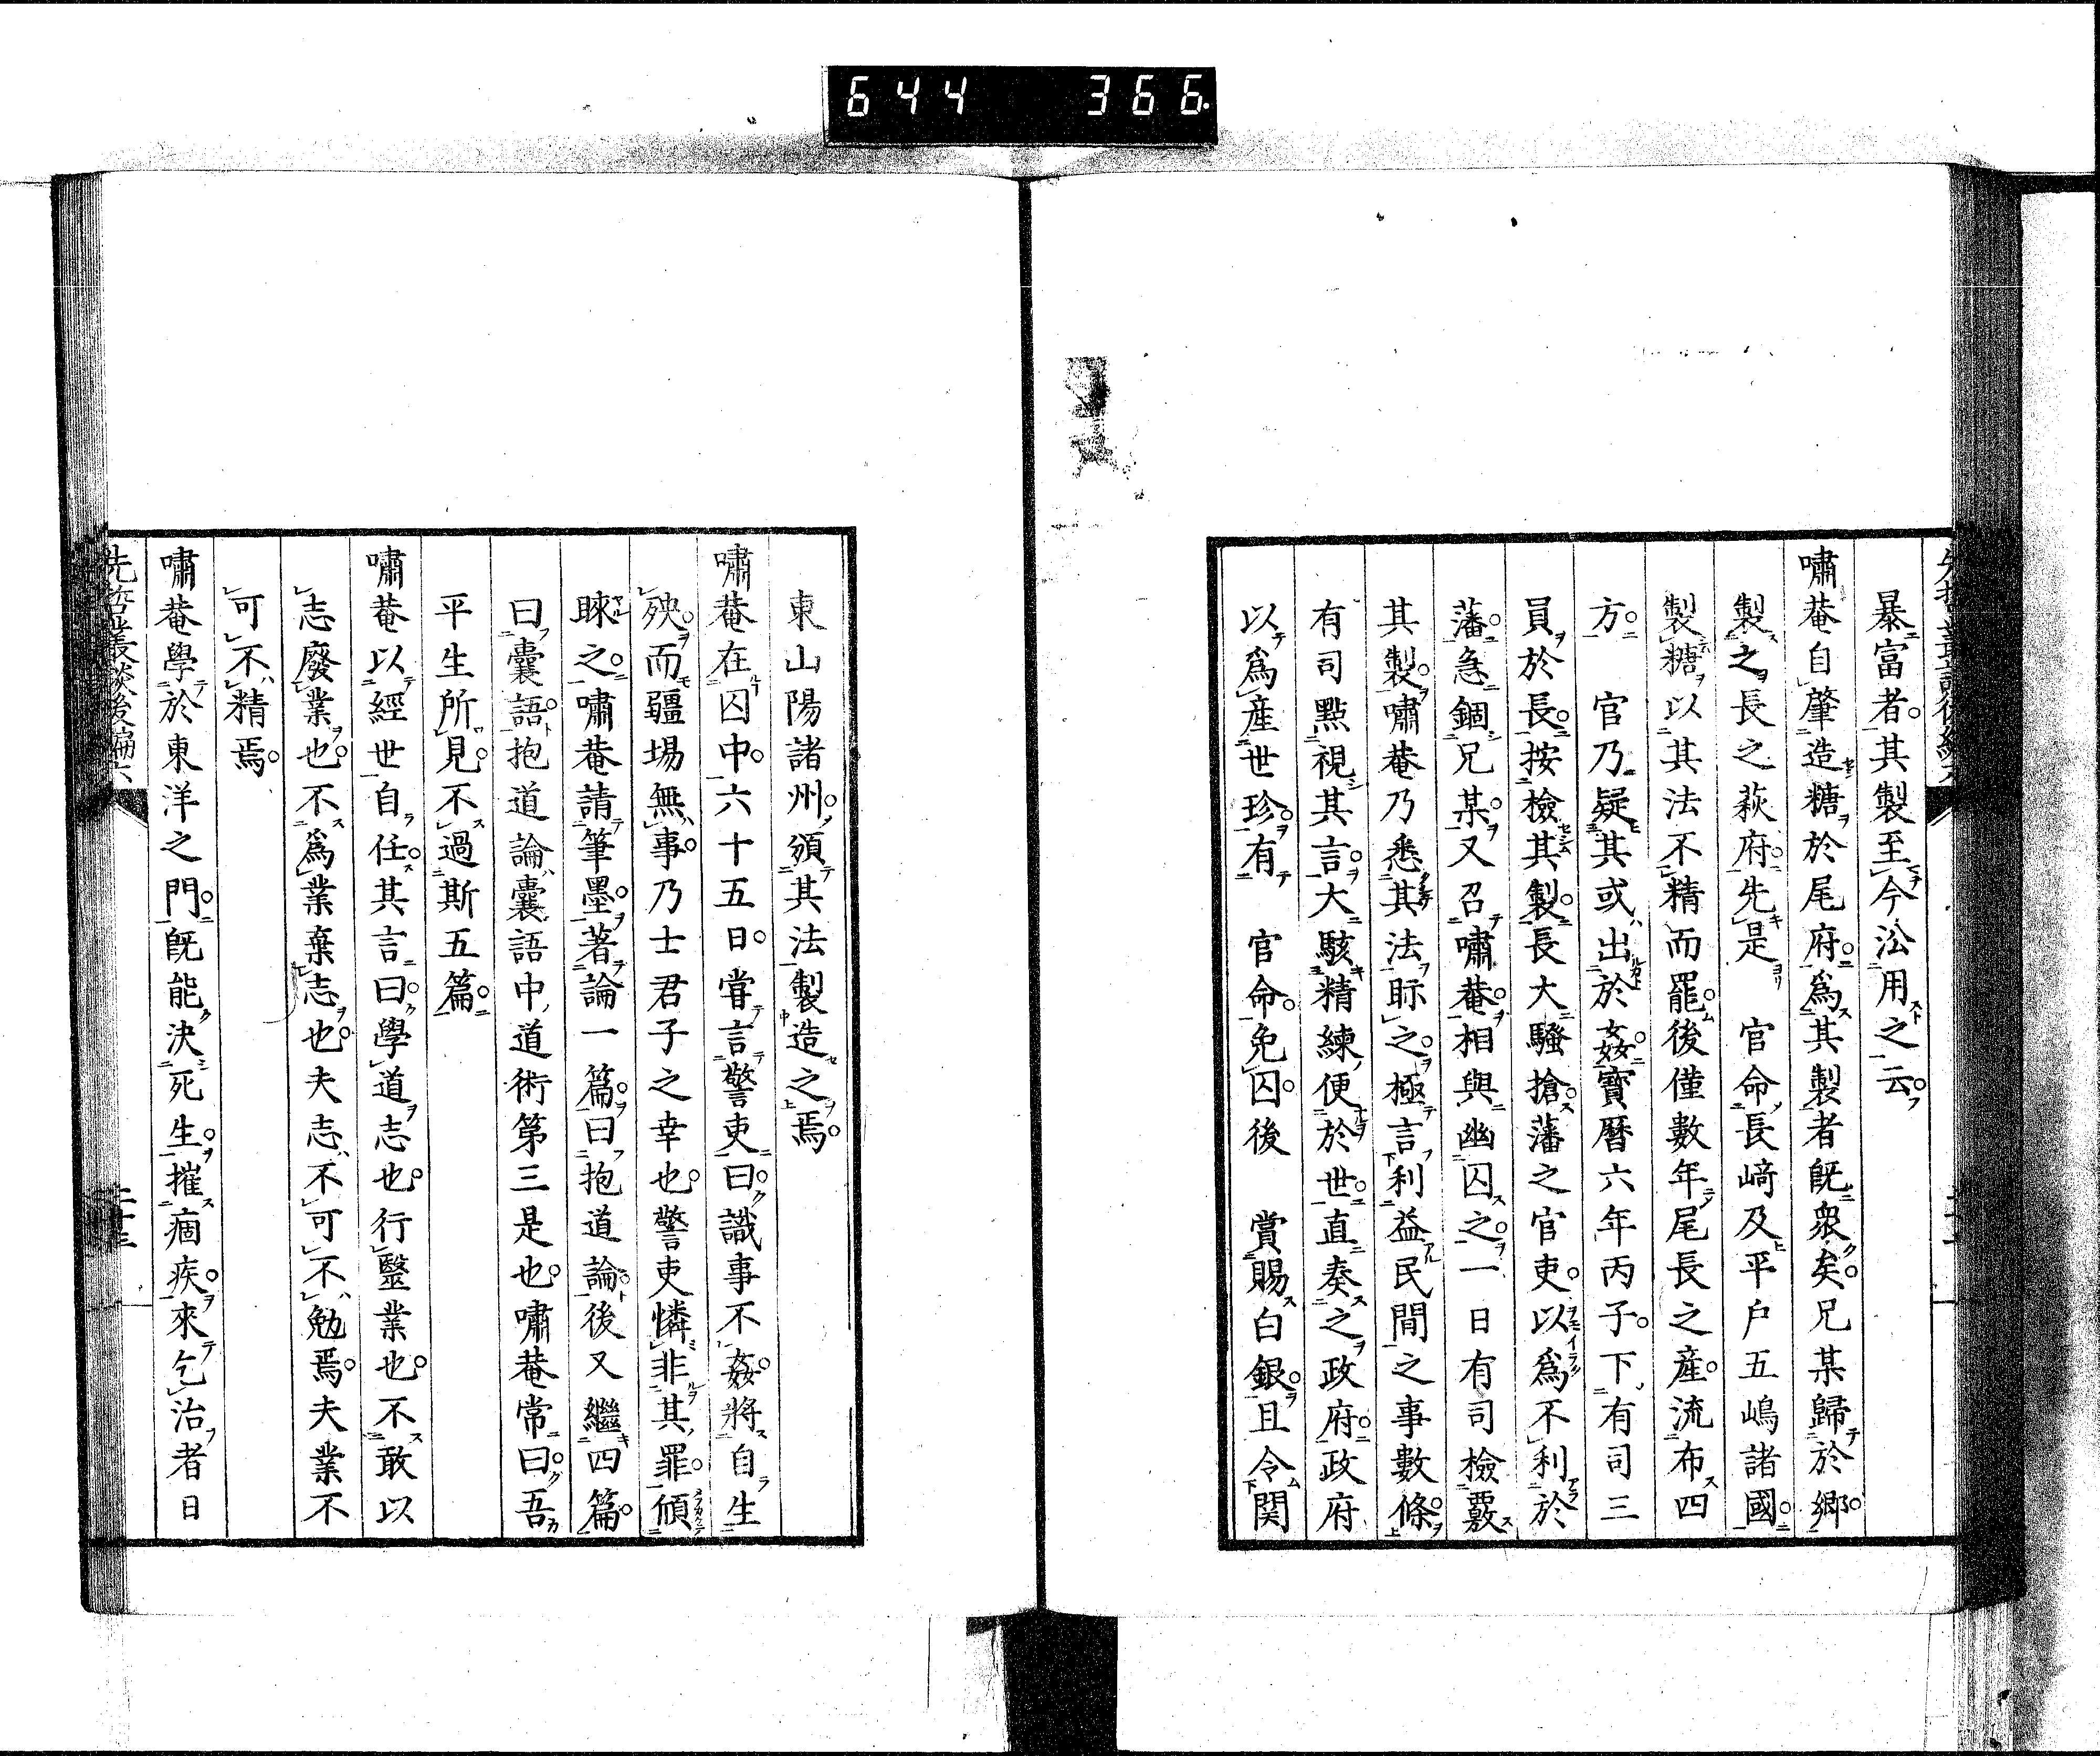 644 366.
暴富者其製至今㳂用之云
嘯菴自肇造糖於尾府爲其製者旣衆矣兄某歸於鄉
製之長之萩府先是 官命長﨑及平戶五嶋諸國
製糖以其法不精而罷後僅數年尾長之產流布四
方 官乃疑其或出於姦寶曆六年丙子下有司三
員於長按檢其製長大騷搶藩之官吏以爲不利於
藩急錮兄某又召嘯菴相與幽囚之一日有司檢覈
其製嘯菴乃悉其法眎之極言利益民間之事數條
有司點視其言大駭精練便於世直奏之政府政府
以爲產世珍有 官命免囚後 賞賜白銀且令関
東山陽諸州頒其法製造之焉
嘯菴在囚中六十五日嘗言警吏曰識事不姦將自生
殃而疆場無事乃士君子之幸也警吏憐非其罪傾
睞之嘯菴請筆墨著論一篇曰抱道論後又繼四篇
曰囊語抱道論囊語中道術第三是也嘯菴常曰吾
平生所見不過斯五篇
嘯菴以經世自任其言曰學道志也行毉業也不敢以
志廢業也不爲業棄志也夫志不可不勉焉夫業不
可不精焉
嘯菴學於東洋之門旣能決死生摧痼疾來乞治者日
先哲叢談後編六